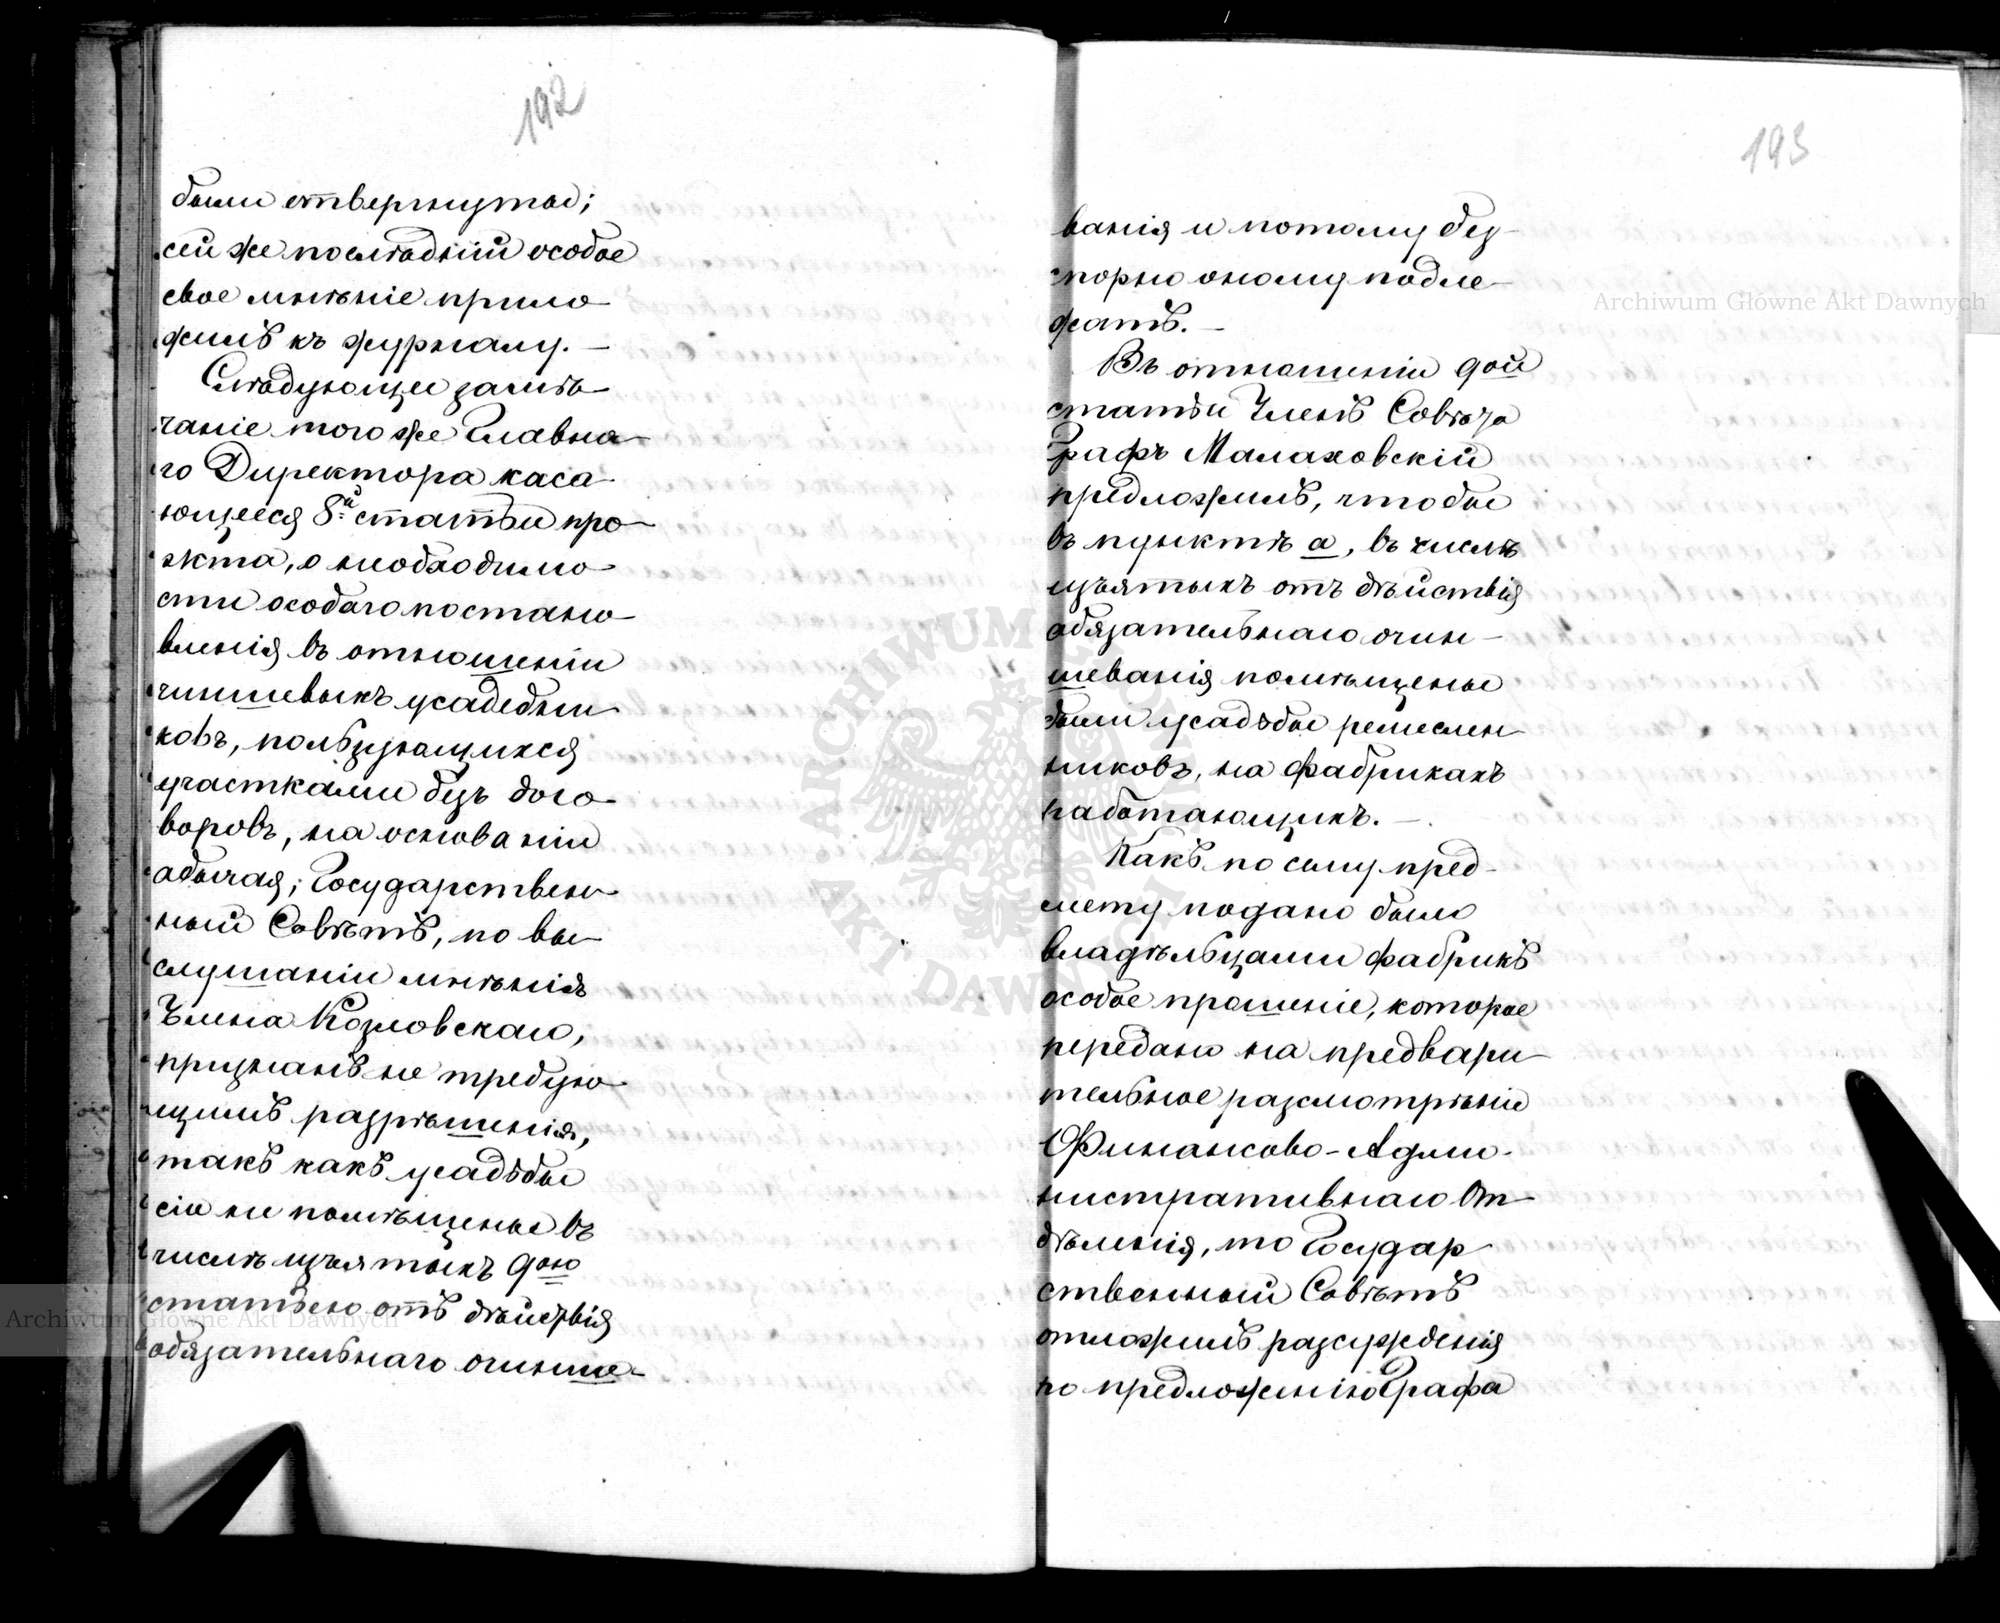 192
были отвергнуты;
сей же послѣдній особое
свое мнѣніе прило-
жилъ къ журналу. —
Слѣдующее замѣ-
чаніе того же Главна-
го Директора каса-
ющееся 8й статьи про-
экта, о необходимо-
сти особаго постано-
вленія въ отношеніи
чиншевыхъ усадебни-
ковъ, пользующихся
участками безъ дого-
воровъ, на основаніи
обычая; Государствен-
ный Совѣтъ, по вы-
слушаніи мнѣнія
Члена Козловскаго,
призналъ не требую-
щимъ разрѣшенія,
такъ какъ усадьбы
сіи не помѣщены въ
числѣ изъятыхъ 9ою
статьею отъ дѣйствія
обязательнаго очинше-
193
ванія и потому без-
спорно оному подле-
жатъ. —
Въ отношеніи 9ой
статьи Членъ Совѣта
Графъ Малаховскій
предложилъ, чтобы
въ пунктѣ а, въ числѣ
изъятыхъ отъ дѣйствія
обязательнаго очин-
шеванія помѣщены
были усадьбы ремеслен-
никовъ, на фабрикахъ
работающихъ. —
Какъ по сему пред-
мету подано было
владѣльцами фабрикъ
особое прошеніе, которое
передано на предвари-
тельное разсмотрѣніе
Финансово-Адми-
нистративнаго От-
дѣленія, то Государ-
ственный Совѣтъ
отложилъ разсужденія
по предложенію Графа
Archiwum Główne Akt Dawnych
Archiwum Główne Akt Dawnych
ARCHIWUM GŁÓWNE AKT DAWNYCH